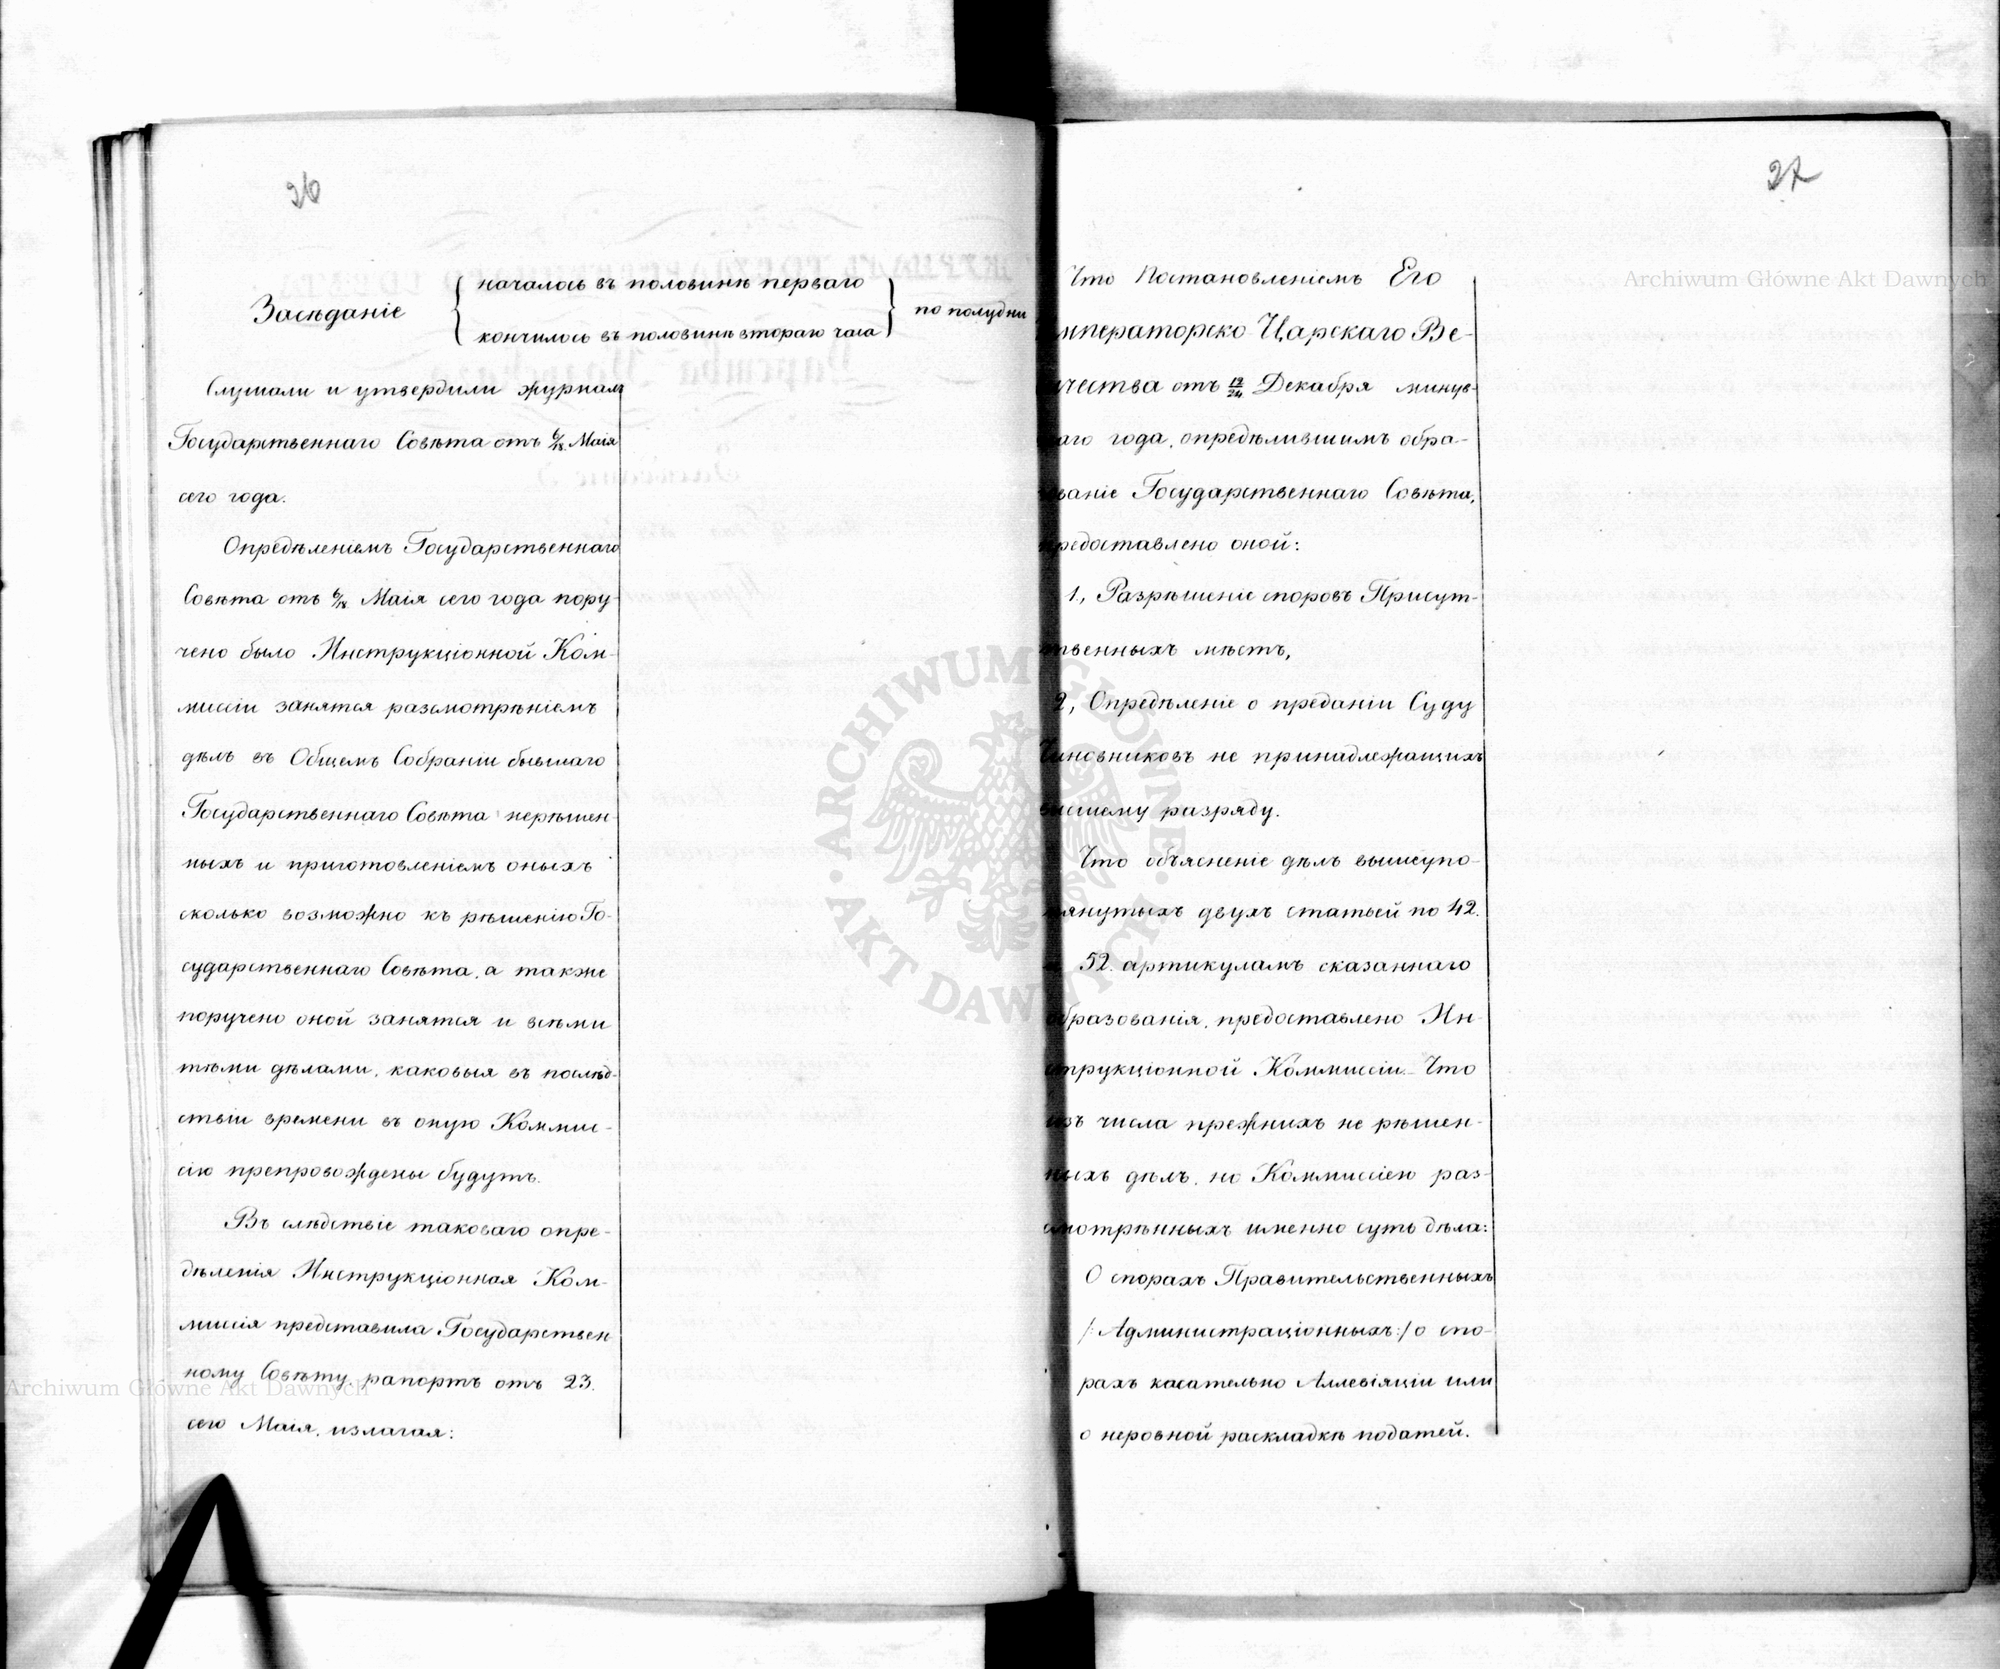 26
Засѣданіе
началось въ половинѣ перваго
кончилось въ половинѣ втораго часа
по полудни
Слушали и утвердили журналъ
Государственнаго Совѣта отъ 6/18. Маія
сего года.
Опредѣленіемъ Государственнаго
Совѣта отъ 6/18. Маія сего года пору-
чено было Инструкціонной Ком-
миссіи занятся разсмотрѣніемъ
дѣлъ въ Общемъ Собраніи бывшаго
Государственнаго Совѣта нерѣшен-
ныхъ и приготовленіемъ оныхъ
сколько возможно къ рѣшенію Го-
сударственнаго Совѣта, а также
поручено оной занятся и всѣми
тѣми дѣлами, каковыя въ послѣд-
ствіи времени въ оную Коммис-
сію препровождены будутъ.
Въ слѣдствіе таковаго опре-
дѣленія Инструкціонная Ком-
миссія представила Государствен
ному Совѣту рапортъ отъ 23.
сего Маія, излагая:
27
Что Постановленіемъ Его
мператорско Царскаго Ве-
ичества отъ 12/24 Декабря минув-
аго года, опредѣлившимъ обра-
ованіе Государственнаго Совѣта,
предоставлено оной:
1, Разрѣшеніе споровъ Присут-
твенныхъ мѣстъ,
2, Опредѣленіе о преданіи Суду
Чиновниковъ не принадлежащихъ
высшему разряду.
Что объясненіе дѣлъ вышеупо-
мянутыхъ двухъ статьей по 42.
52. артикуламъ сказаннаго
образованія, предоставлено Ин-
струкціонной Коммиссіи. Что
изъ числа прежнихъ не рѣшен-
ныхъ дѣлъ, но Коммиссіею раз-
смотрѣнныхъ именно суть дѣла:
О спорахъ Правительственныхъ
/: Администраціонныхъ :/ о спо-
рахъ касательно Аллевіяціи или
о неровной раскладкѣ податей.
Archiwum Główne Akt Dawnych
Archiwum Główne Akt Dawnych
ARCHIWUM GŁÓWNE · AKT DAWNYCH ·